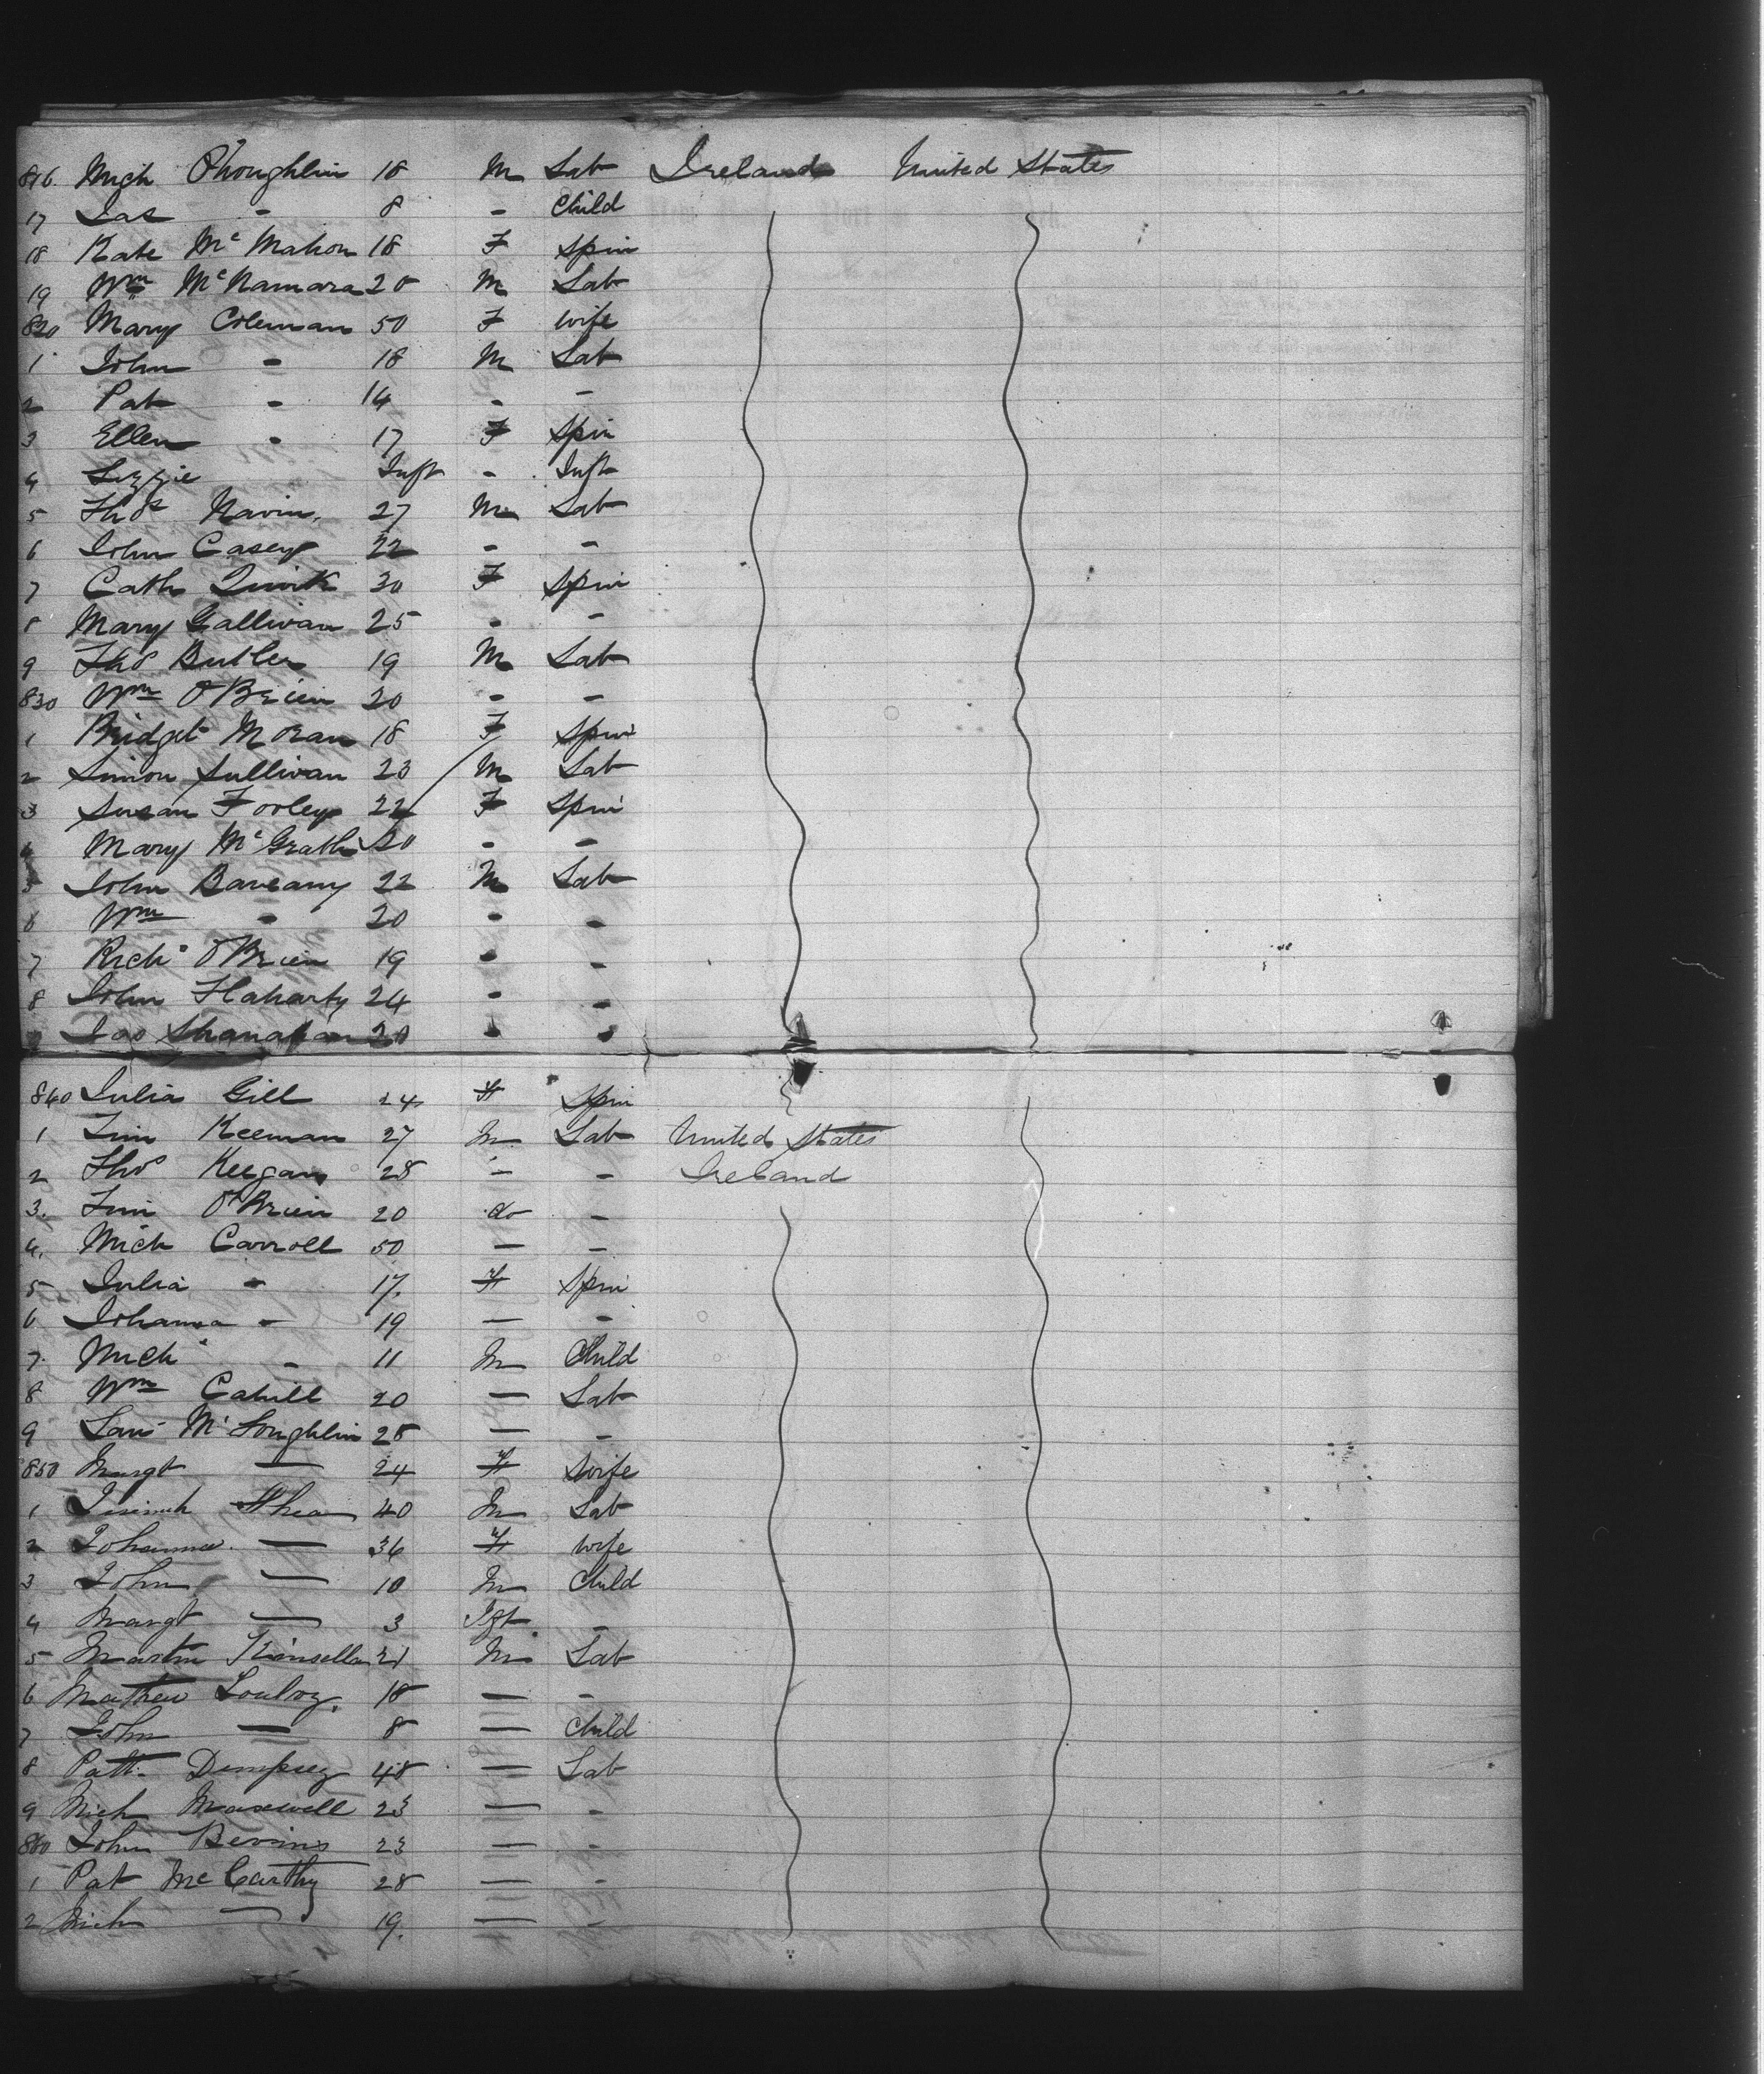 816. Mich O'Loughlin 18 M Lab Ireland United States
17 Jas - 8 - Child
18 Kate Mc Mahon 18 F Spin
19 Wm McNamara 20 M Lab
820 Mary Coleman 50 F Wife
1 John - 18 M Lab
2 Pat - 14 - -
3 Ellen - 17 F Spin
4 Lizzie Inft - Inft
5 Thos Navin 27 M Lab
6 John Casey 22 - -
7 Cath Quirk 30 F Spin
8 Mary Gallivan 25 - -
9 Thos Butler 19 M Lab
830 Wm O'Brien 20 - -
1 Bridget Moran 18 F Spin
2 Simon Sullivan 23 M Lab
3 Susan Fooley 22 F Spin
4 Mary McGrath 20 - -
5 John 22 M Lab
6 Wm - 20 - -
7 Rich O'Brien 19 - -
8 John Flaharty 24 - -
9 Jas Shanahan 20 - -
840 Julia Gill 24 F Spin
1 Tim Keenan 27 M Lab United States
2 Thos Keegan 28 - - Ireland
3. Tim O'Brien 20 do -
4. Mich Carroll 50 - -
5 Julia - 17. F Spin
6 Johanna - 19 - -
7. Mich - 11 M Child
8 Wm Cahill 20 - Lab
9 Law McLoughlin 28 - -
850 Margt - 24 F Wife
1 Shea 40 M Lab
2 Johanna - 36 F Wife
3 John - 10 M Child
4 Margt - 3 Ift -
5 Martin Kinsella 21 M Lab
6 Mathew 18 - -
7 John - 8 - Child
8 Patt Dempsey 48 - Lab
9 Mich Maxwell 23 - -
860 John Bevins 23 - -
1 Pat McCarthy 28 - -
2 Mich - 19. - -